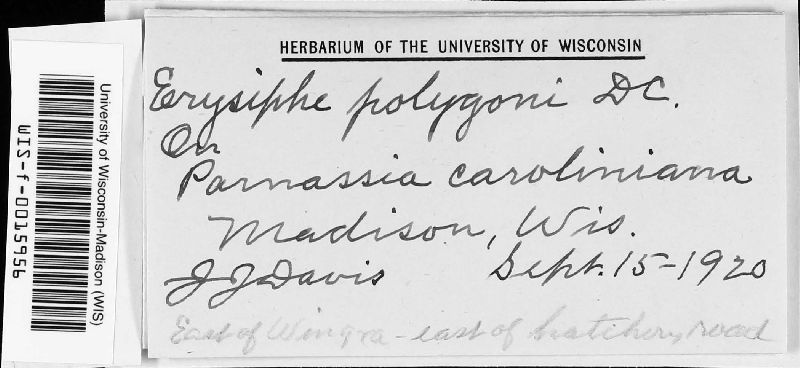 University of Wisconsin-Madison (WIS)
WIS-f-0015956
HERBARIUM OF THE UNIVERSITY OF WISCONSIN
Erysiphe polygoni DC.
On
Parnassia caroliniana
Madison, Wis.
J J Davis Sept. 15-1920
East of Wingra - east of hatchery road